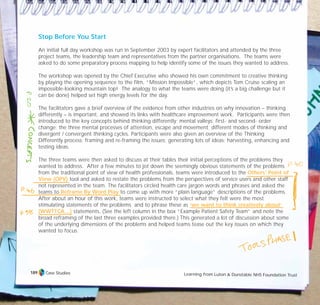 Stop Before You Start
An initial full day workshop was run in September 2003 by expert facilitators and attended by the three
project teams, the leadership team and representatives from the partner organisations. The teams were
asked to do some preparatory process mapping to help identify some of the issues they wanted to address.
The workshop was opened by the Chief Executive who showed his own commitment to creative thinking
by playing the opening sequence to the film, "Mission Impossible", which depicts Tom Cruise scaling an
impossible-looking mountain top! The analogy to what the teams were doing (it's a big challenge but it
can be done) helped set high energy levels for the day.
The facilitators gave a brief overview of the evidence from other industries on why innovation - thinking
differently - is important, and showed its links with healthcare improvement work. Participants were then
introduced to the key concepts behind thinking differently: mental valleys; first- and second- order
change; the three mental processes of attention, escape and movement; different modes of thinking and
divergent / convergent thinking cycles. Participants were also given an overview of the Thinking
Differently process: framing and re-framing the issues; generating lots of ideas; harvesting, enhancing and
testing ideas.
The three teams were then asked to discuss at their tables their initial perceptions of the problems they
wanted to address. After a few minutes to jot down the seemingly obvious statements of the problems
from the traditional point of view of health professionals, teams were introduced to the Others' Point of
View (OPV) tool and asked to restate the problems from the perspectives of service users and other staff
not represented in the team. The facilitators circled health care jargon words and phrases and asked the
teams to Reframe By Word Play to come up with more "plain language" descriptions of the problems.
After about an hour of this work, teams were instructed to select what they felt were the most
stimulating statements of the problems and to phrase these as we want to think creatively about
(WWTTCA...) statements. (See the left column in the box "Example Patient Safety Team" and note the
broad reframing of the last three examples provided there.) This generated a lot of discussion about some
of the underlying dimensions of the problems and helped teams tease out the key issues on which they
wanted to focus.
THE CONCEPTS
P 40
P 40
P 38
TOOLS PHASE 1
189 Case Studies
Learning from Luton & Dunstable NHS Foundation Trust